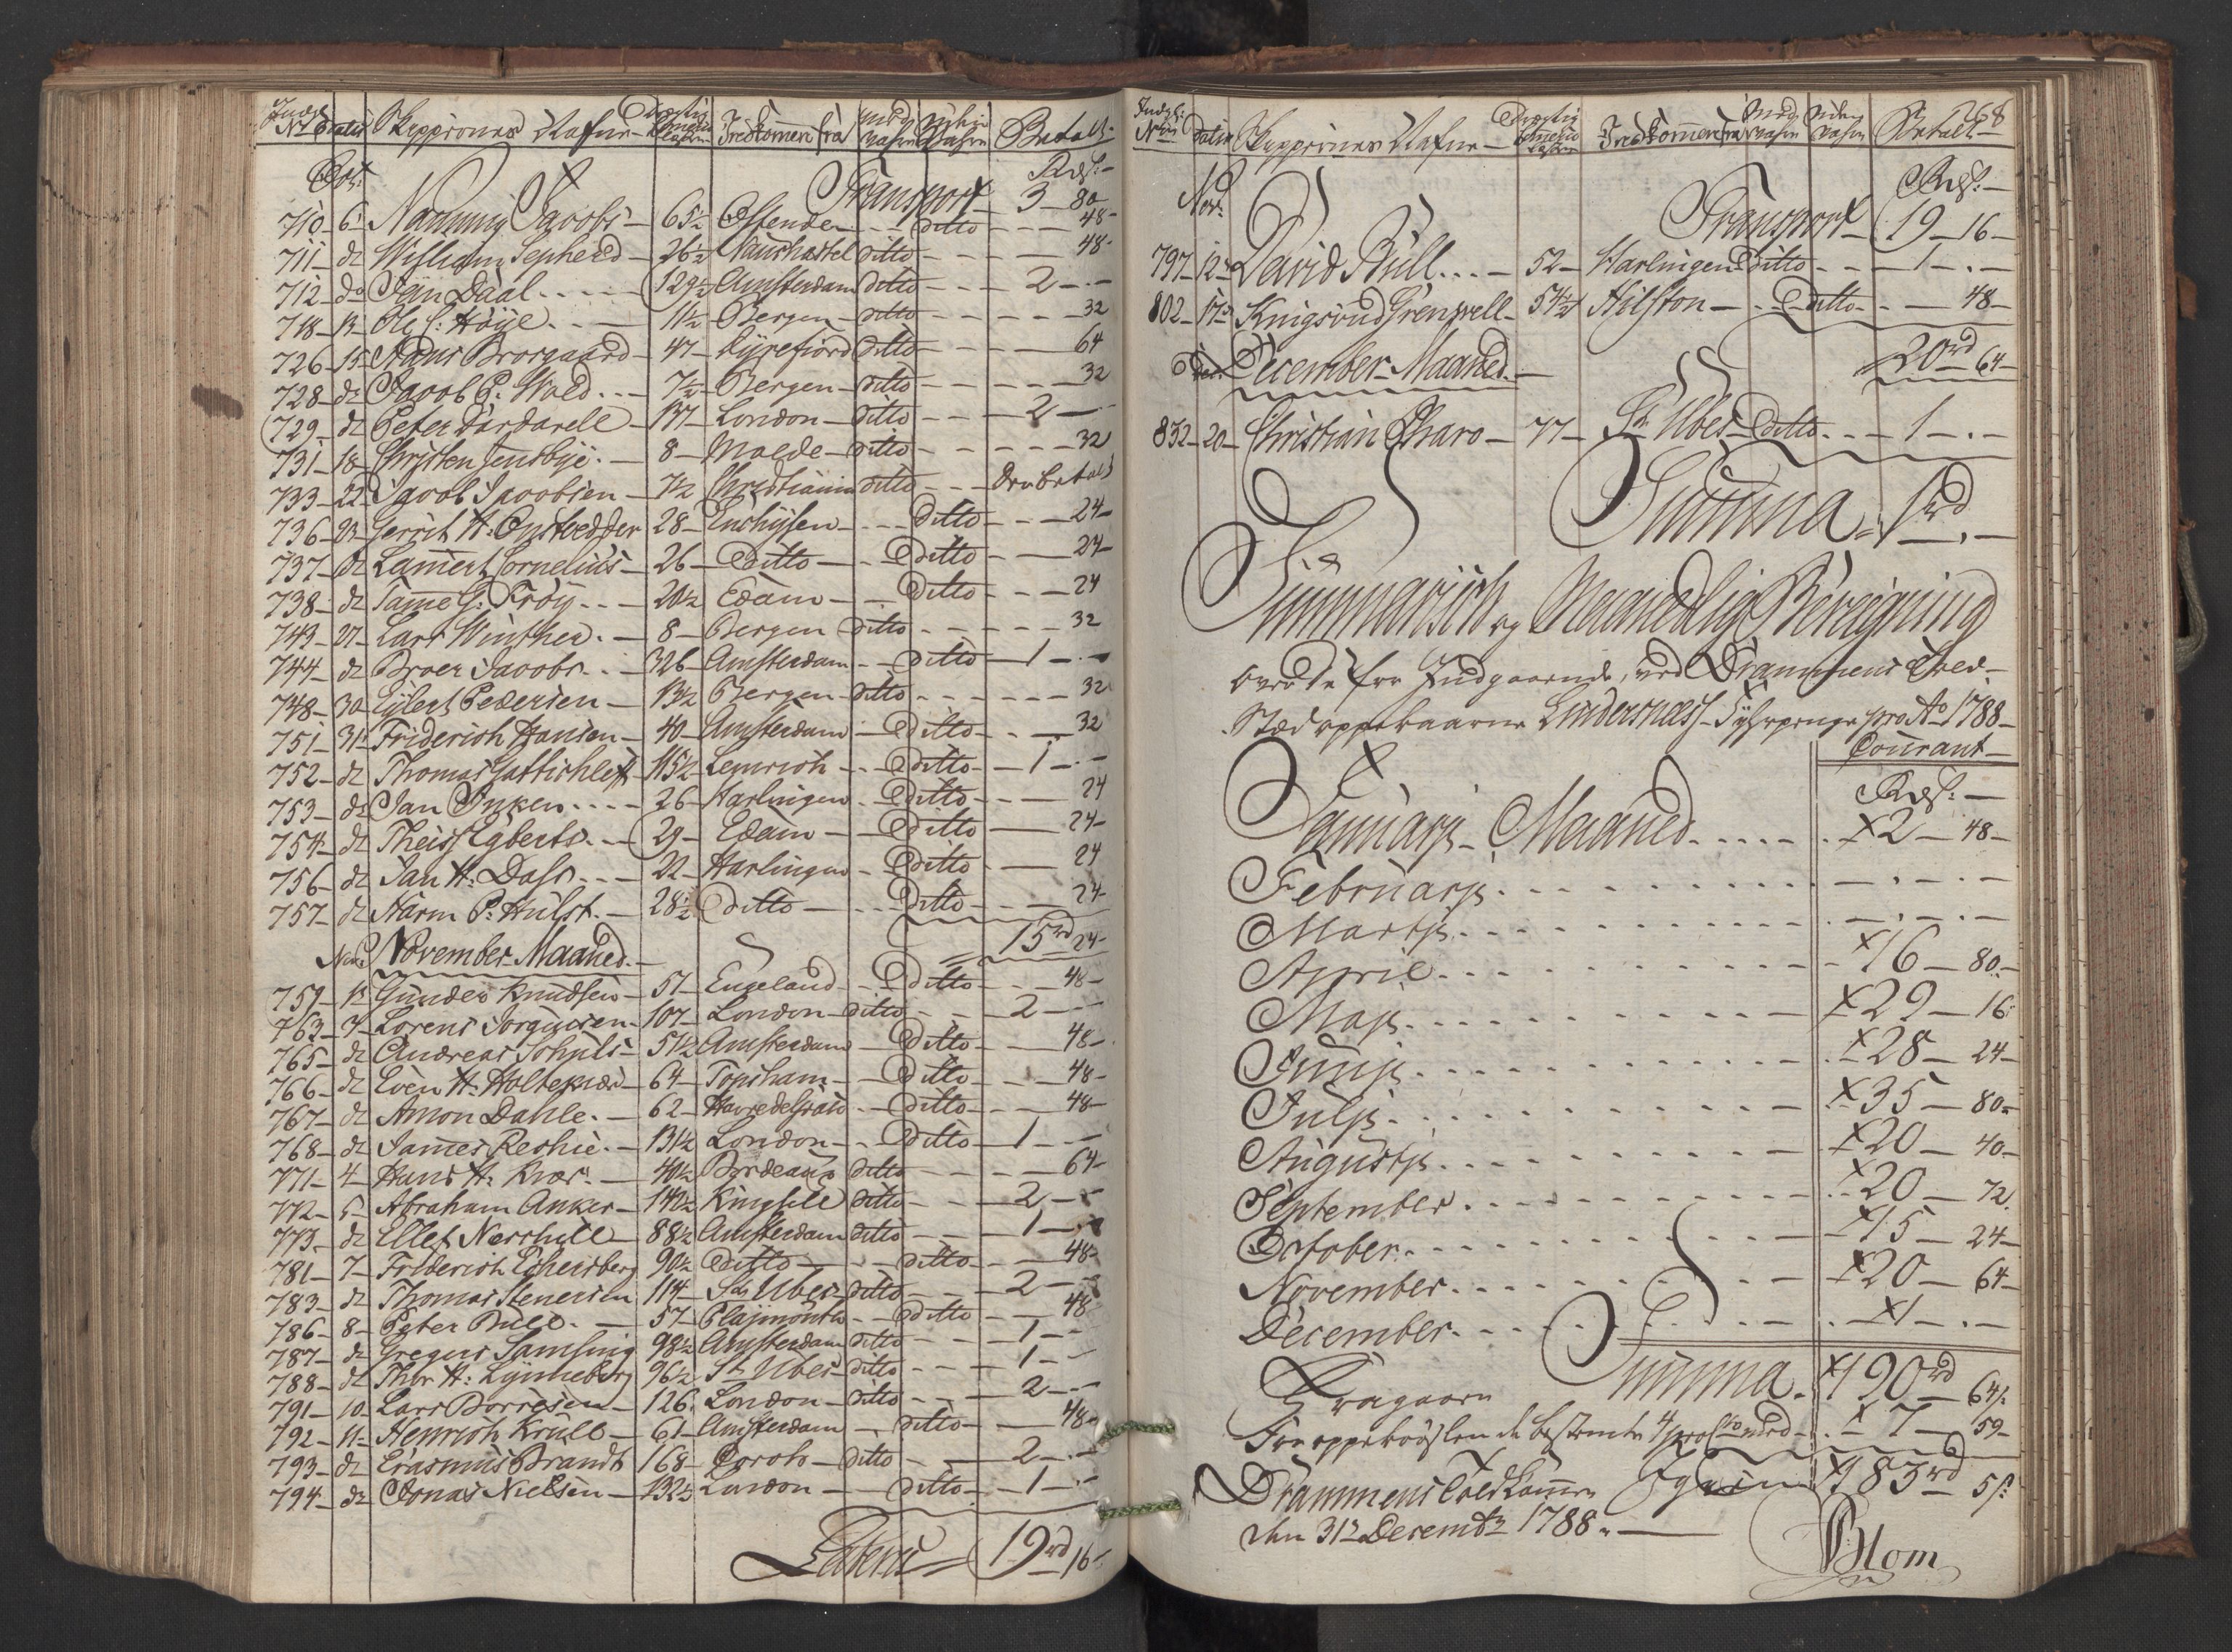 No Datis Skippernes Nafne Drægtig Commerce Læster Indkommen fra med vahre uden Vahre Betalt
Oct: Rdf:
Transport 3 80
710 6 Nanning Jacobs 65½ Ostende ditto 48
711 do William Sepherd 26½ Nauchastel ditto 48
712 do Jan Daal 129½ Amsterdam ditto 2
718 13 Ole C: Höije 11½ Bergen ditto 32
726 15 Hans Brorgaard 47 Dyrefiord ditto 64
728 do Jacob P. Wold 7½ Bergen ditto 32
729 do Peter Dardarell 137 London ditto 2
731 18 Christen Jensbye 8 Molde ditto 32
733 22 Jacob Jacobsen 7½ Christiania ditto
736 23 Gerrit H. 28 Enchysen Ditto 24
737 do Lammert Cornelius 26 Ditto Ditto 24
738 do Tamme G. Pröy 20½ Edam Ditto 24
743 27 Lars Winther 8 Bergen ditto 32
744 do Broer Jacobs 326 Amsterdam ditto 1
748 30 Eylert Pedersen 13½ Bergen ditto 32
751 31 Friderich Hansen 40 Amsterdam Ditto 32
752 do Thomas 115½ Lemvich Ditto 1
753 do Jan Inken 26 Harlingen Ditto 24
754 do Theiss Egberts 29 Edam Ditto 24
756 do Jan H. Dass 22 Harlingen Ditto 24
757 do Harm P. Hulst 28½ Ditto Ditto 24
15 rd 24
Nov: November Maaned
759 1 Gunder Knudsen 57 Engeland Ditto 48
763 3 Lorens Jørgensen 107 London ditto 2
765 do Andreas Schuls 51½ Amsterdam Ditto 48
766 do Even H. Holtekiær 64 Topsham Ditto 48
767 do Amon Dahle 62 Havredegrace Ditto 48
768 do James Reshie 131½ London Ditto 1
771 4 Hans H. Kiær 40½ Bordeaux ditto 64
772 6 Abraham Anker 140½ Kingsele ditto 2
773 do Ellef Narchill 88½ Amsterdam ditto 1
781 7 Friderich Eskersberg 90½ Ditto ditto 48
783 do Thomas Stenersen 114 St Ubes ditto 2
786 8 Peter Bull 57 Plaijmouth ditto 48
787 do Gregers Samsing 98½ Amsterdam ditto 1
788 do Thor H: Lynneberg 96½ St Ubes ditto 1
791 10 Lars Borresen 126 London ditto 2
792 11 Henrich Krull 61 Amsterdam ditto 48
793 do Erasmus Brandt 168 Corch ditto 2
794 do Jonas Nielsen 132½ London ditto 1
Lateris 19 rd 16
268
No Datis Skippernes Nafne Drægtig Commerce Læster Indkommen fra med vahre uden vahre Betalt
Nov: Rdf:
Transport 19 16
797 12 David Bull 52 Harlingen Ditto 1
802 17 Knigsvud Grenwell 54½ Hilston Ditto 48
20 rd 64
Dec: December Maaned
832 20 Christian Pharo 77 St Ubes Ditto 1
Summa 1 rd
Summarisk og Maanedlig Beregning
over de for Indgaaende, ved Drammens Told-
Sted oppebaarne Lindersness Fyhrpenge pro Ao 1788
Courant
Rdf:
Januarij Maaned 2 48
Februarij
Martij
April 16 80
Maji 29 16
Junij 28 24
Julij 35 80
Augustij 20 40
September 20 72
October 15 24
November 20 64
December 1
Summa 190 rd 64
Fragaaer
For oppebørselen de bestemte 4 pro Cto med 7 59
Igien 183 rd 5
Drammens Toldkammer
den 31 Decembr 1788
Blom